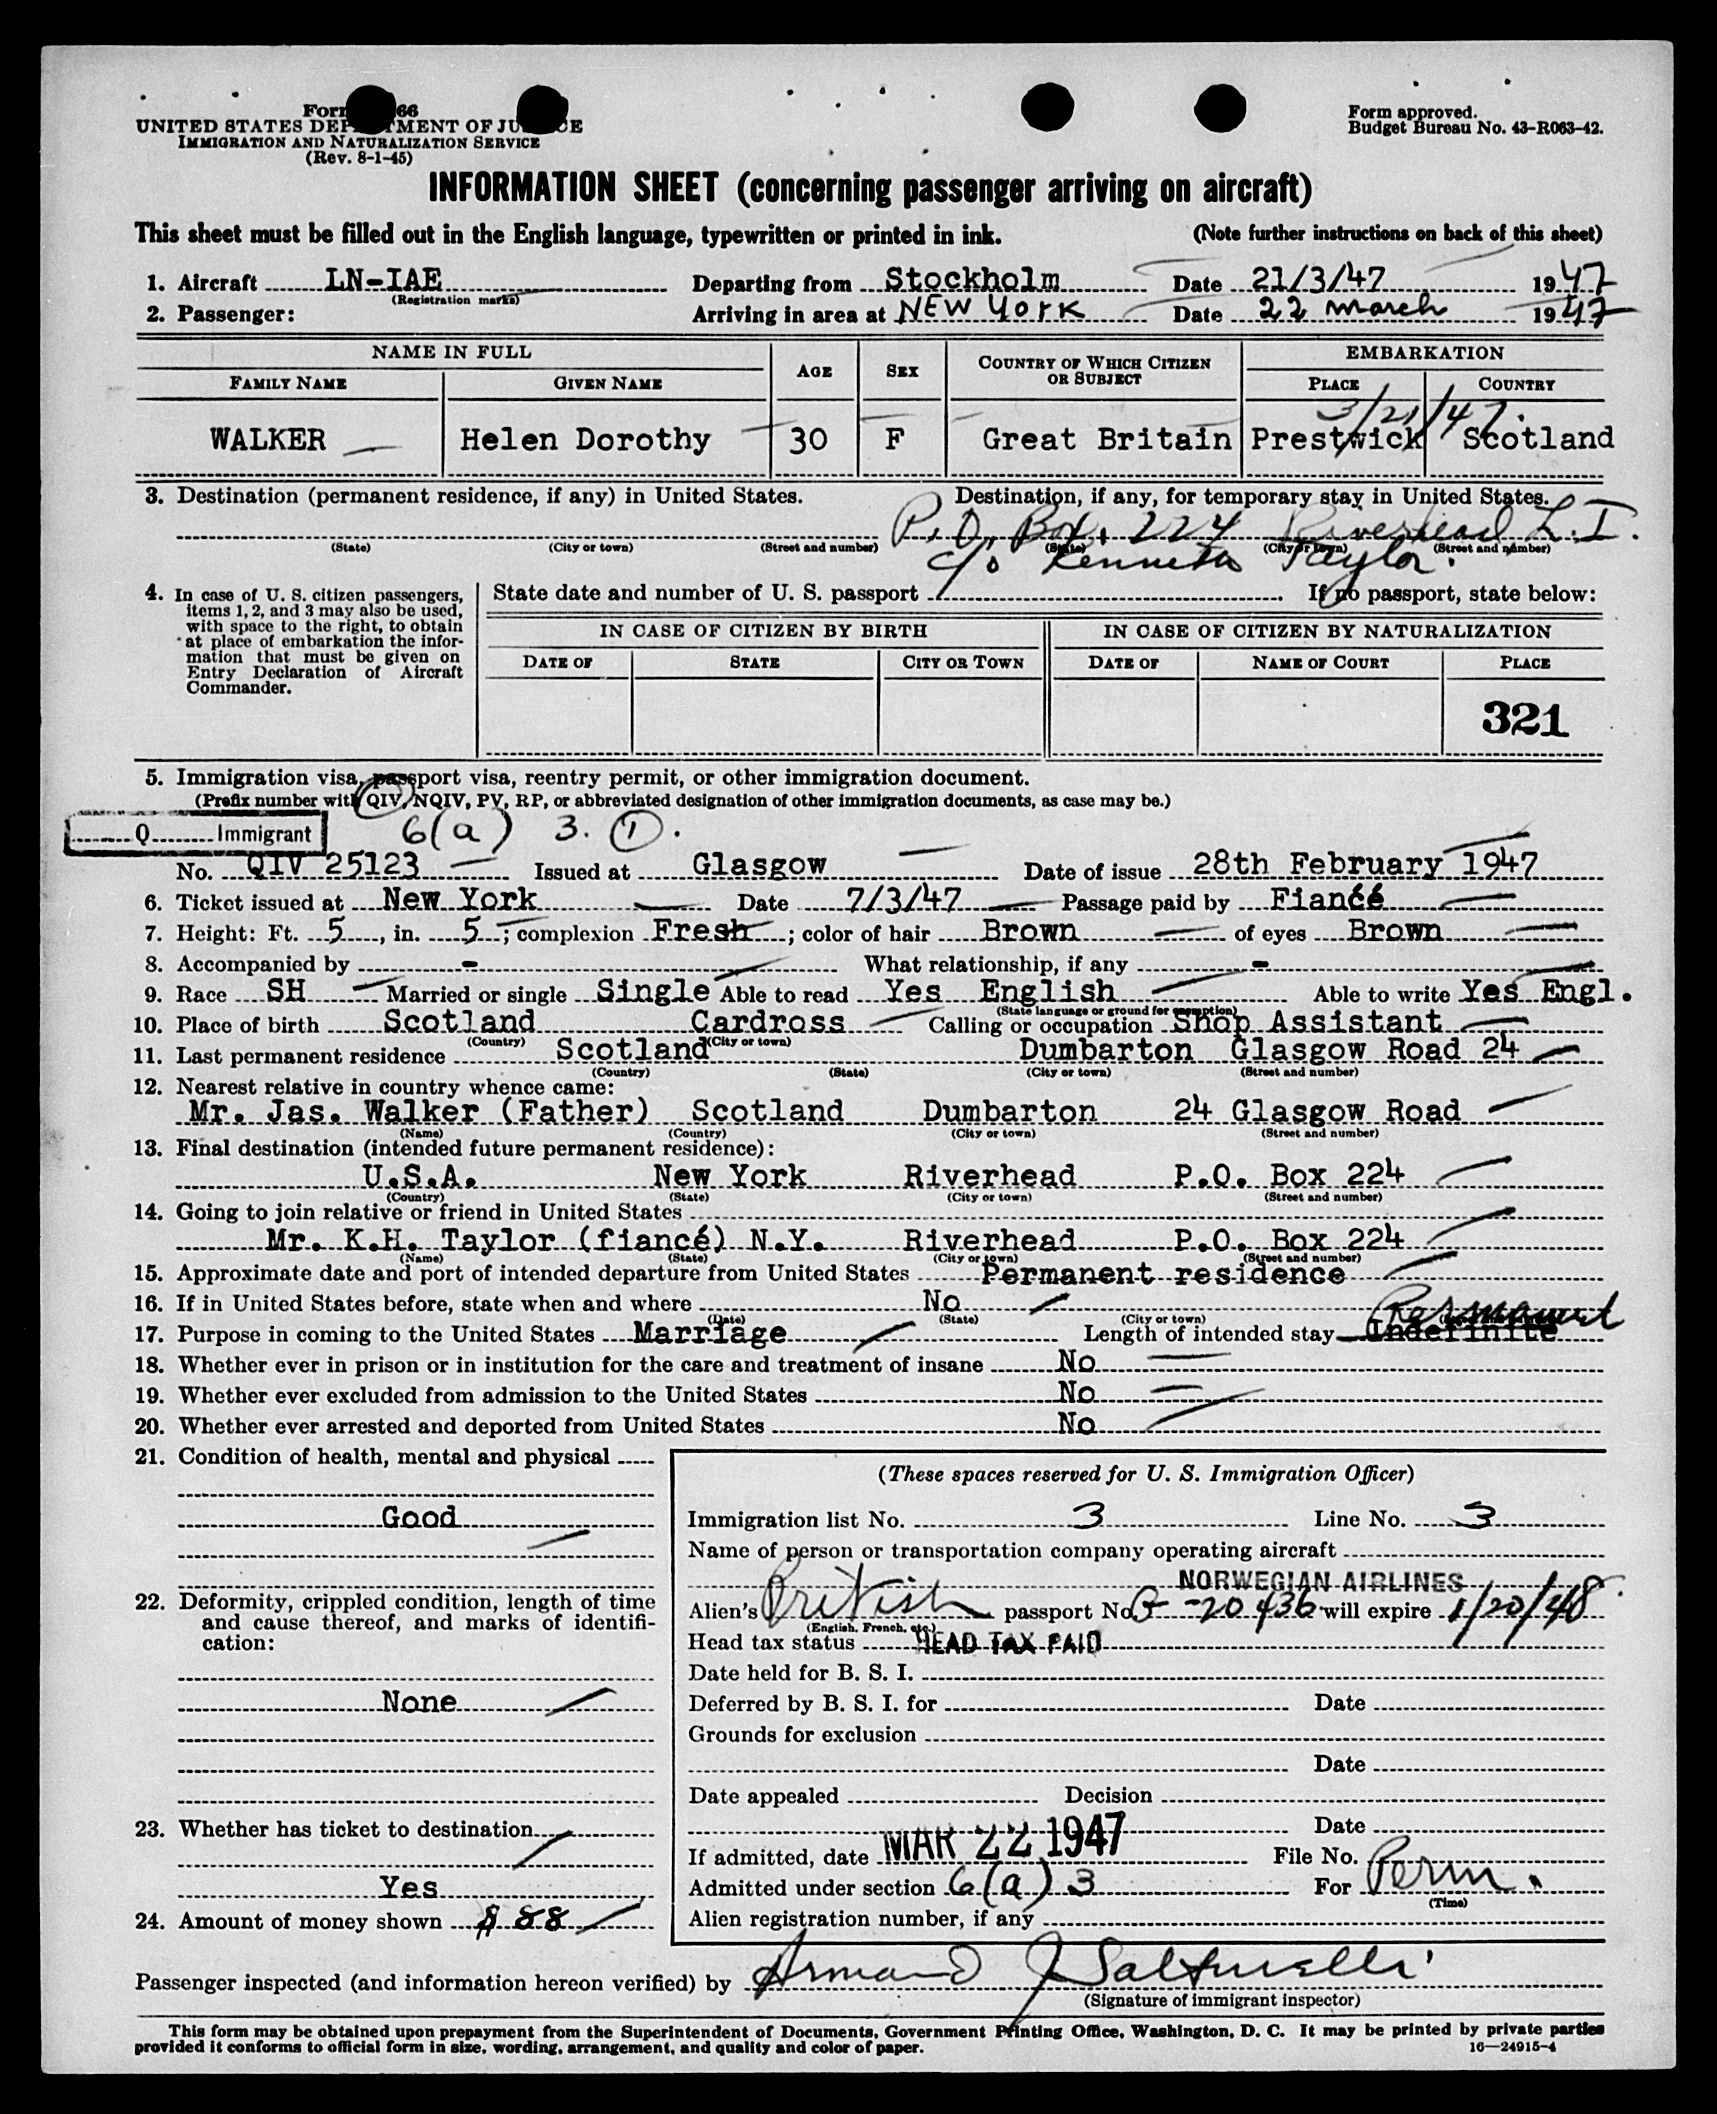 Form 66
UNITED STATES DEPARTMENT OF JUSTICE
IMMIGRATION AND NATURALIZATION SERVICE
(Rev. 8-1-45)
Form approved.
Budget Bureau No. 43-R063-42.
INFORMATION SHEET (concerning passenger arriving on aircraft)
This sheet must be filled out in the English language, typewritten or printed in ink. (Note further instructions on back of this sheet)
1. Aircraft LN-IAE Departing from Stockholm Date 21/3/47 1947
(Registration marks)
2. Passenger: Arriving in area at NEW YORK Date 22 march 1947
NAME IN FULL AGE SEX COUNTRY OF WHICH CITIZEN OR SUBJECT EMBARKATION
FAMILY NAME GIVEN NAME PLACE COUNTRY
3/21/47.
WALKER Helen Dorothy 30 F Great Britain Prestwick Scotland
3. Destination (permanent residence, if any) in United States. Destination, if any, for temporary stay in United States.
P.O. Box 224 Riverhead L.I.
(State) (City or town) (Street and number) (State) (City or town) (Street and number)
c/o Kenneth Taylor.
4. In case of U. S. citizen passengers, items 1, 2, and 3 may also be used, with space to the right, to obtain at place of embarkation the information that must be given on Entry Declaration of Aircraft Commander.
State date and number of U. S. passport If no passport, state below:
IN CASE OF CITIZEN BY BIRTH IN CASE OF CITIZEN BY NATURALIZATION
DATE OF STATE CITY OR TOWN DATE OF NAME OF COURT PLACE
321
5. Immigration visa, passport visa, reentry permit, or other immigration document.
(Prefix number with QIV, NQIV, PV, RP, or abbreviated designation of other immigration documents, as case may be.)
Q Immigrant 6(a) 3. 1.
No. QIV 25123 Issued at Glasgow Date of issue 28th February 1947
6. Ticket issued at New York Date 7/3/47 Passage paid by Fiancé
7. Height: Ft. 5, in. 5; complexion Fresh; color of hair Brown of eyes Brown
8. Accompanied by - What relationship, if any -
9. Race SH Married or single Single Able to read Yes English Able to write Yes Engl.
(State language or ground for exemption)
10. Place of birth Scotland Cardross Calling or occupation Shop Assistant
(Country) (City or town)
11. Last permanent residence Scotland Dumbarton Glasgow Road 24
(Country) (State) (City or town) (Street and number)
12. Nearest relative in country whence came:
Mr. Jas. Walker (Father) Scotland Dumbarton 24 Glasgow Road
(Name) (Country) (City or town) (Street and number)
13. Final destination (intended future permanent residence):
U.S.A. New York Riverhead P.O. Box 224
(Country) (State) (City or town) (Street and number)
14. Going to join relative or friend in United States
Mr. K.H. Taylor (fiancé) N.Y. Riverhead P.O. Box 224
(Name) (State) (City or town) (Street and number)
15. Approximate date and port of intended departure from United States Permanent residence
16. If in United States before, state when and where No
(Date) (State) (City or town)
17. Purpose in coming to the United States Marriage Length of intended stay Indefinite Permanent
18. Whether ever in prison or in institution for the care and treatment of insane No
19. Whether ever excluded from admission to the United States No
20. Whether ever arrested and deported from United States No
21. Condition of health, mental and physical
Good
22. Deformity, crippled condition, length of time and cause thereof, and marks of identification:
None
23. Whether has ticket to destination
Yes
24. Amount of money shown $ 88
(These spaces reserved for U. S. Immigration Officer)
Immigration list No. 3 Line No. 3
Name of person or transportation company operating aircraft
NORWEGIAN AIRLINES
Alien's British passport No. B-20436 will expire 1/20/48.
(English, French, etc.)
Head tax status HEAD TAX PAID
Date held for B. S. I.
Deferred by B. S. I. for Date
Grounds for exclusion
Date
Date appealed Decision
Date
If admitted, date MAR 22 1947 File No.
Admitted under section 6(a) 3 For Perm.
(Time)
Alien registration number, if any
Passenger inspected (and information hereon verified) by Armand J
(Signature of immigrant inspector)
This form may be obtained upon prepayment from the Superintendent of Documents, Government Printing Office, Washington, D. C. It may be printed by private parties
provided it conforms to official form in size, wording, arrangement, and quality and color of paper. 16—24915-4